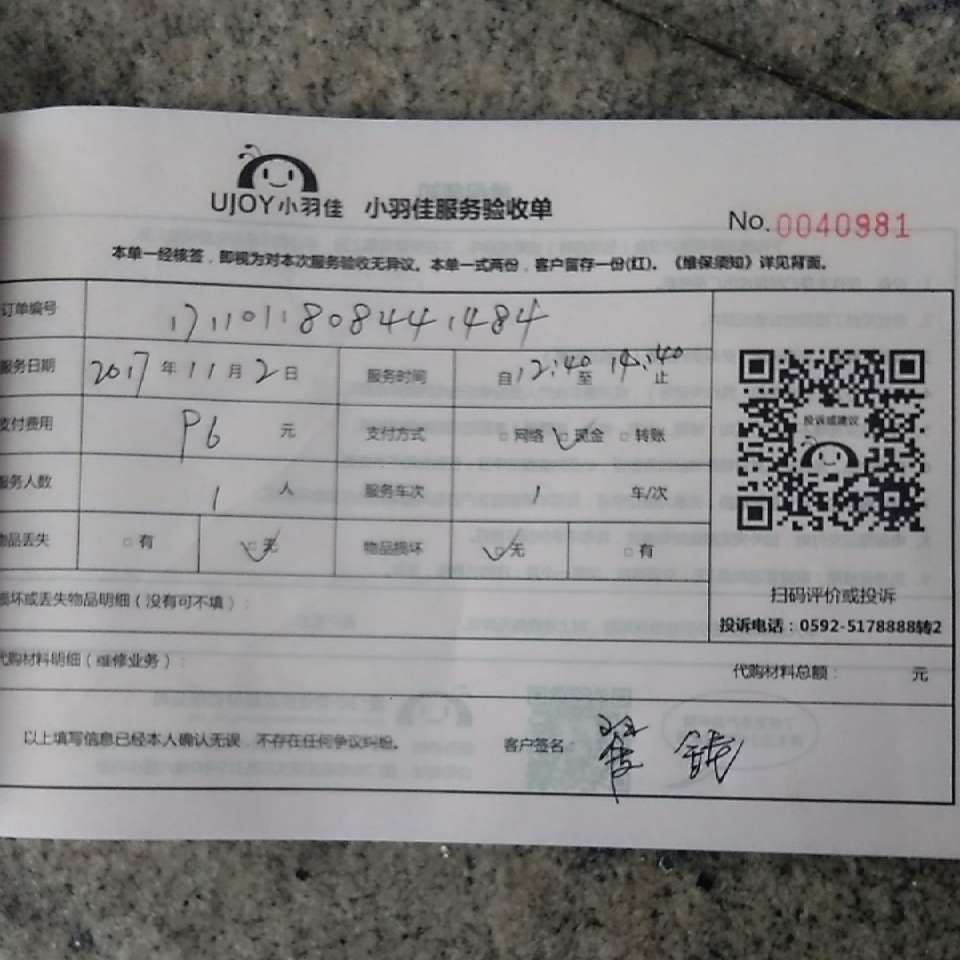 UJOY小羽佳 小羽佳服务验收单
No. 0040981
本单一经核签，即视为对本次服务验收无异议。本单一式两份，客户留存一份(红)。《维保须知》详见背面。
订单编号 1711011808441484
服务日期 2017年11月2日 服务时间 自12:40至14:40止
支付费用 96 元 支付方式 网络 现金 转账
服务人数 1 人 服务车次 1 车/次
物品丢失 有 无 物品损坏 无 有
投诉或建议
扫码评价或投诉
投诉电话：0592-5178888转2
损坏或丢失物品明细（没有可不填）：
代购材料明细（维修业务）： 代购材料总额： 元
以上填写信息已经本人确认无误，不存在任何争议纠纷。 客户签名：